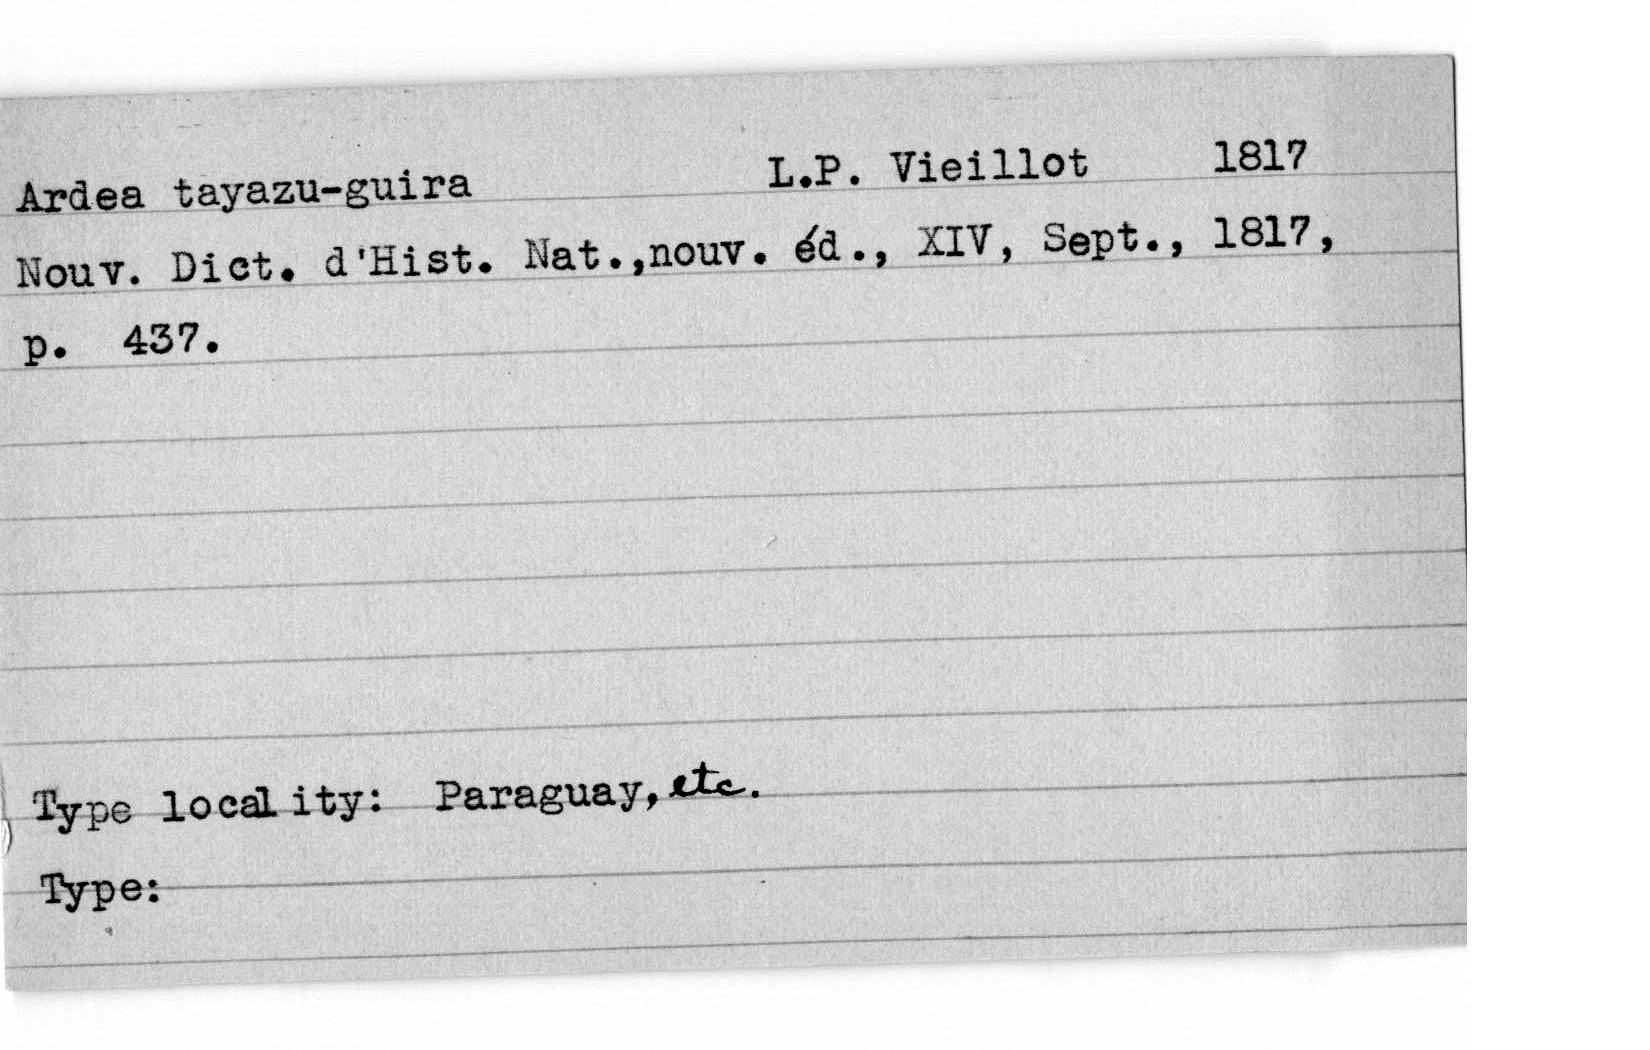 Ardea tayazu-guira L.P. Vieillot 1817
Nouv. Dict. d'Hist. Nat.,nouv. éd., XIV, Sept., 1817,
p. 437.
Type locality: Paraguay, etc.
Type: